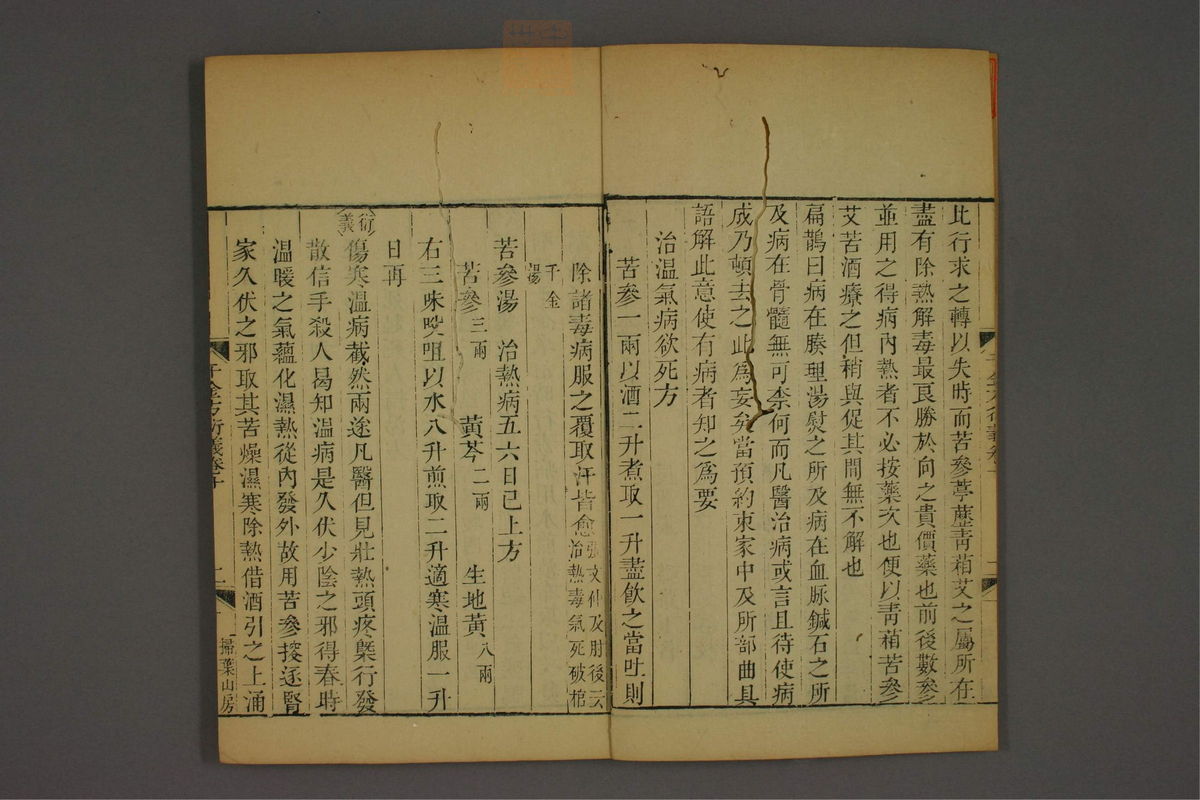 比行求之轉以失時而苦參葶藶青葙艾之屬所在
盡有除熱解毒最良勝於向之貴價藥也前後數參
並用之得病內熱者不必按藥次也便以青葙苦參
艾苦酒療之但稍與促其間無不解也
扁鵲曰病在腠理湯熨之所及病在血脉鍼石之所
及病在骨髓無可柰何而凡醫治病或言且待使病
成乃頓去之此爲妄矣當預約束家中及所部曲具
語解此意使有病者知之爲要
治温氣病欲死方
苦參一兩以酒二升煮取一升盡飲之當吐則
除諸毒病服之覆取汗皆愈張文仲及肘後云
治熱毒氣死破棺
千金
湯
苦參湯 治熱病五六日已上方
苦參三兩 黄芩二兩 生地黄八兩
右三味㕮咀以水八升煎取二升適寒温服一升
日再
衍義
傷寒温病截然兩途凡醫但見壯熱頭疼槩行發
散信手殺人曷知温病是久伏少陰之邪得春時
温暖之氣蘊化濕熱從內發外故用苦參搜逐腎
家久伏之邪取其苦燥濕寒除熱借酒引之上涌
千金方衍義卷十
二
掃葉山房